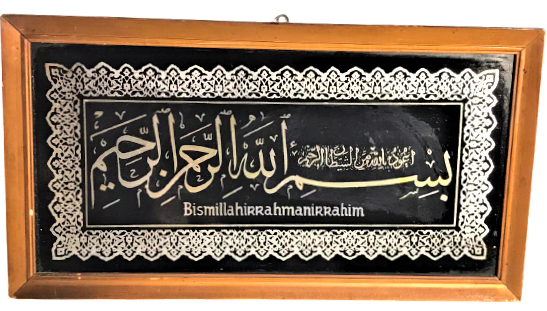 أعوذ بالله من الشيطان الرجيم
بسم الله الرحمن الرحيم
Bismillahirrahmanirrahim